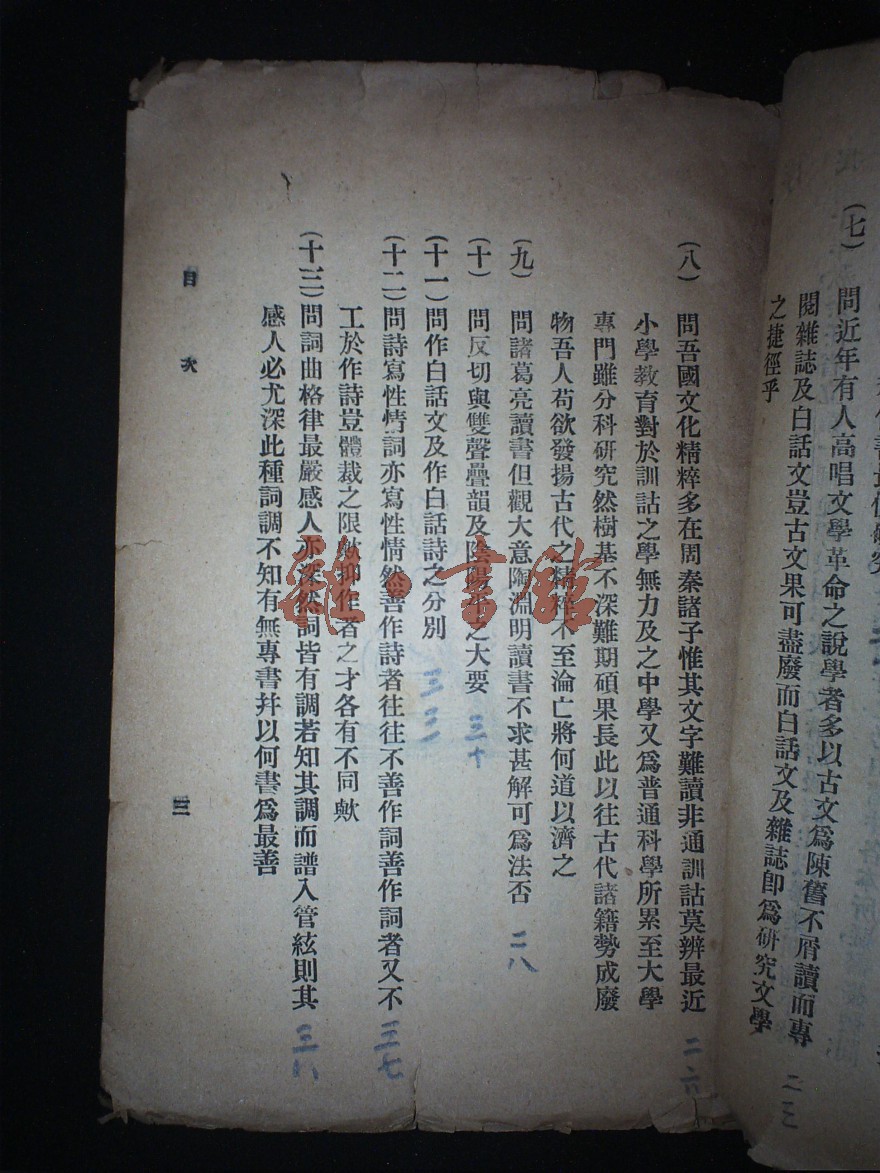 (七) 問近年有人高唱文學革命之說學者多以古文爲陳舊不屑讀而專
閱雜誌及白話文豈古文果可盡廢而白話文及雜誌卽爲研究文學
之捷徑乎
二三
(八) 問吾國文化精粹多在周秦諸子惟其文字難讀非通訓詁莫辨最近
小學教育對於訓詁之學無力及之中學又爲普通科學所累至大學
專門雖分科研究然樹基不深難期碩果長此以往古代諸籍勢成廢
物吾人苟欲發揚古代之精粹不至淪亡將何道以濟之
二六
(九) 問諸葛亮讀書但觀大意陶淵明讀書不求甚解可爲法否
二八
(十) 問反切與雙聲疊韻及陰陽平之大要
三十
(十一) 問作白話文及作白話詩之分別
三三
(十二) 問詩寫性情詞亦寫性情然善作詩者往往不善作詞善作詞者又不
工於作詩豈體裁之限歟抑作者之才各有不同歟
三七
(十三) 問詞曲格律最嚴感人亦深然詞皆有調若知其調而譜入管絃則其
感人必尤深此種詞調不知有無專書幷以何書爲最善
三八
目次
三
雜·書館